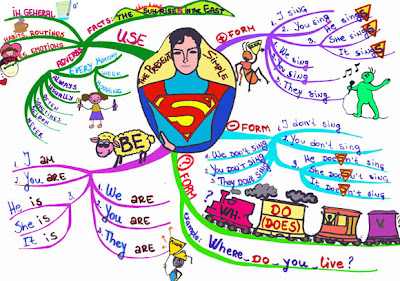 IN GENERAL
HABITS, ROUTINES
EMOTIONS
FACTS: THE SUN RISES IN THE EAST
USE
ADVERBS
EVERY MORNING
WEEK
ALWAYS
USUALLY
OFTEN
SOMETIMES
SELDOM
NEVER
THE PRESENT SIMPLE
S
+ FORM
1. I sing
2. You sing
3. He sings
She sings
It sings
1. We sing
2. You sing
3. They sing
- FORM
1. I don't sing
2. You don't sing
3. He Doesn't sing
She Doesn't sing
It Doesn't sing
1. We Don't sing
2. You Don't sing
3. They Don't sing
BE
1. I AM
2. You ARE
3.
He is
She is
It is
1. We ARE
2. You ARE
3. They ARE
? FORM
?
WH.
DO
(DOES)
V.
example:
Where DO you live?